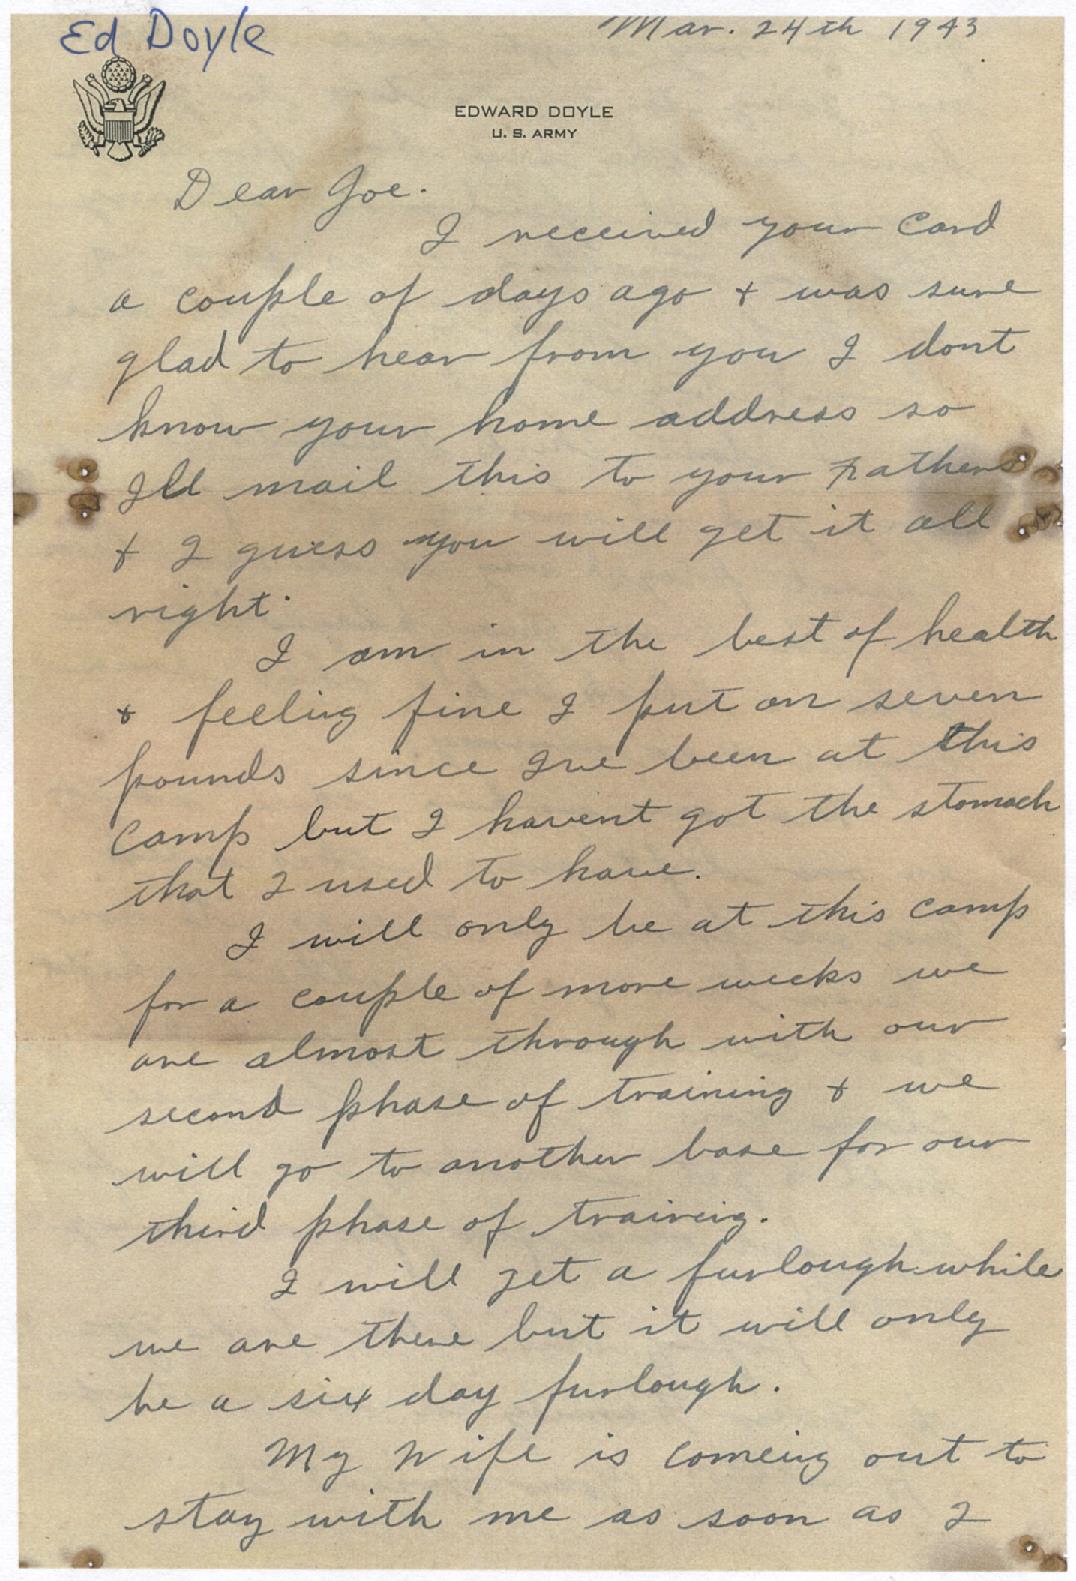 Ed Doyle
Mar. 24th 1943
EDWARD DOYLE
U. S. ARMY
Dear Joe.
I received your card
a couple of days ago + was sure
glad to hear from you I dont
know your home address so
Ill mail this to your Fathers
+ I guess you will get it all
right.
I am in the best of health
+ feeling fine I put on seven
pounds since Ive been at this
camp but I havent got the stomach
that I used to have.
I will only be at this camp
for a couple of more weeks we
are almost through with our
second phase of training + we
will go to another base for our
third phase of training.
I will get a furlough while
we are there but it will only
be a six day furlough.
My Wife is comeing out to
stay with me as soon as I